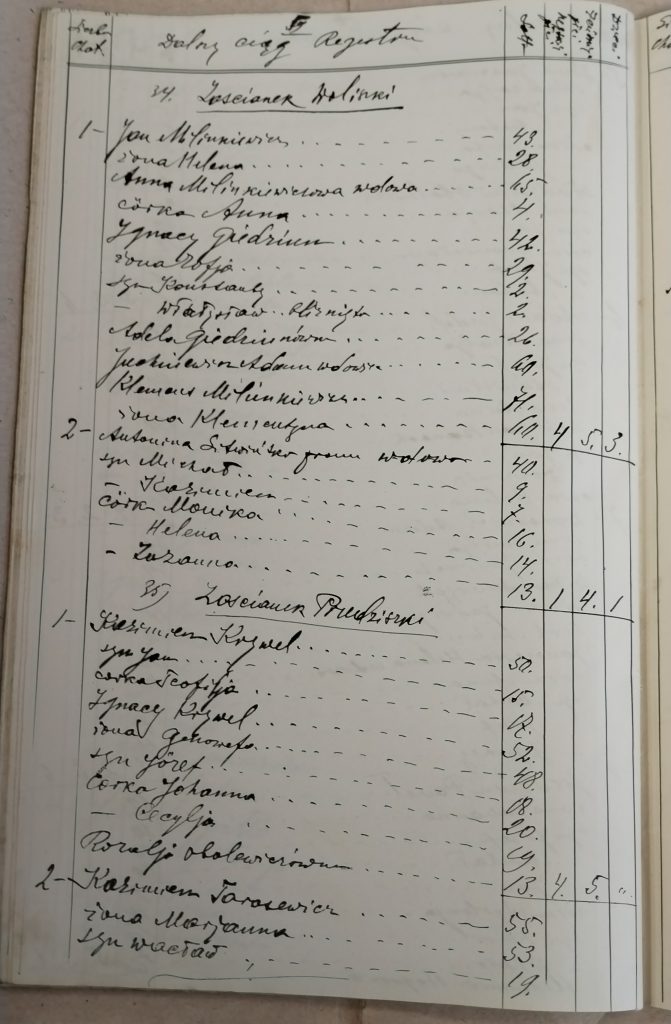 Dalszy ciąg Rejestru
Lat
34. Zaścianek Woliszki
1- Jan Milinkiewicz 43.
żona Helena 28
Anna Milinkiewiczowa wdowa 65.
córka Anna 4.
Ignacy Giedziun 42.
żona Zofja 29.
syn Konstanty 2.
- Władysław bliźnięta 2.
Adela Giedziunówna 26.
Adam wdowiec 60.
Klemens Milinkiewicz 71.
żona Klementyna 60. 4 5. 3.
2- Antonina wdowa 40.
syn Michał 9.
- Kazimierz 7.
córk Monika 16.
- Helena 14.
- Zuzanna 13. 1 4. 1
35) Zaścianek
1- Kazimierz Krywel 50.
syn Jan 15.
córka Teofilja 17.
Ignacy Krywel 52.
żona Genowefa 48.
syn Józef 18.
córka Johanna 20.
- Cecylja 19.
Rozalja Obolewiczówna 13. 4. 5. "
2- Kazimierz Tarasewicz 55.
żona Marjanna 53.
syn Wacław 19.